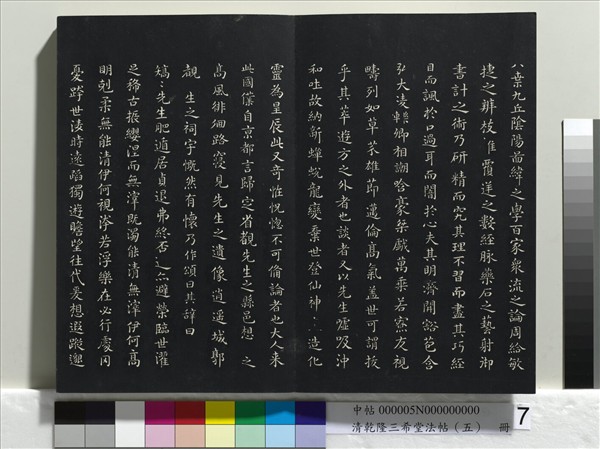 八索九丘陰陽圖緯之學百家衆流之論周給敏
捷之辨枝離覆逆之數經脉藥石之藝射御
書計之術乃研精而究其理不習而盡其巧經
目而諷於口過耳而闇於心夫其明濟開豁苞含
弘大凌轢卿相嘲哈豪桀戲萬乘若寮友視
疇列如草芥雄節邁倫高氣蓋世可謂拔
乎其萃遊方之外者也談者又以先生噓吸沖
和吐故納新蟬蛻龍變棄世登仙神〻造化
靈為星辰此又奇恠怳惚不可備論者也大人来
此國僕自京都言歸定省覩先生之縣邑想之
高風徘徊路寢見先生之遺像逍遥城郭
覩生之祠宇慨然有懷乃作頌曰其辭曰
矯〻先生肥遁居貞退弗終否亦避榮臨世濯
足稀古振纓涅而無滓既濁能清無滓伊何高
明剋柔無能清伊何視洿若浮樂在必行處囚
憂跨世淩時遠蹈獨遊瞻望往代爰想遐蹤邈
中帖 000005N000000000
清乾隆三希堂法帖（五） 冊
7